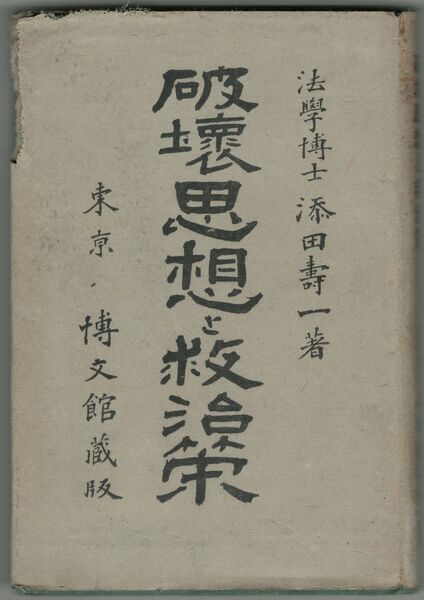 法學博士 添田壽一著
破壞思想と救治策
東京 博文館藏版